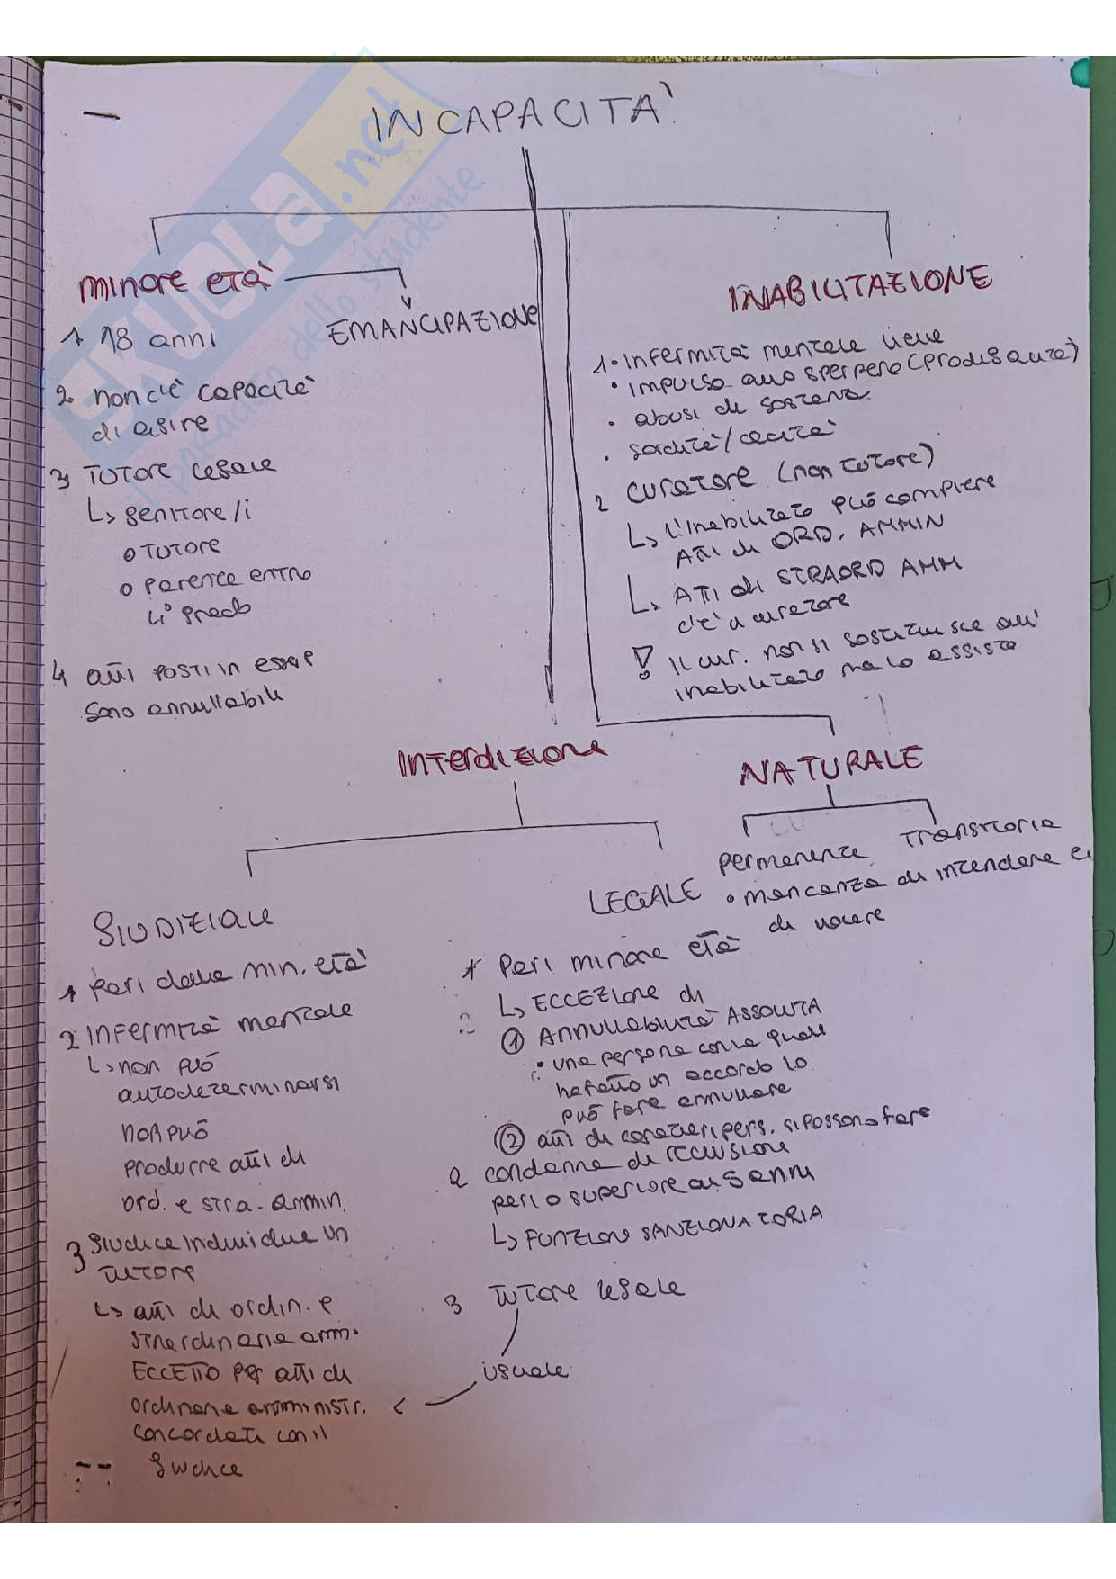 INCAPACITA'
MINORE ETA'
1 18 anni
2 non c'è capacità
di agire
3 TUTORE legale
↳ genitore/i
o TUTORE
o parente entro
4° grado
4 atti posti in essere
sono annullabili
EMANCIPAZIONE
INABILITAZIONE
1 • infermità mentale lieve
• impulso allo sperpero (prodigalità)
• abusi di sostanza
• sordità/cecità
2 curatore (non tutore)
↳ l'inabilitato può compiere
Atti di ORD. AMMIN
↳ ATTI di STRAORD AMM
c'è il curatore
! Il cur. non si sostituisce all'
inabilitato ma lo assiste
Interdizione
NATURALE
permanente
Transitoria
• mancanza di intendere e
di volere
GIUDIZIALE
1 pari della min. età
2 infermità mentale
↳ non può
autodeterminarsi
non può
produrre atti di
ord. e stra. ammin.
3 Giudice individua un
tutore
↳ atti di ordin. e
straordinaria amm.
ECCETTO per atti di
ordinaria amministr.
concordati con il
giudice
LEGALE
1 Pari minore età
↳ ECCEZIONE di
① ANNULLABILITÀ ASSOLUTA
: una persona con la quale
ha fatto un accordo lo
può fare annullare
② atti di carattere pers. si possono fare
2 condanna di reclusione
pari o superiore ai 5 anni
↳ FUNZIONE SANZIONATORIA
3 Tutore legale
uguale
SKUOLA.net
il paradiso dello studente